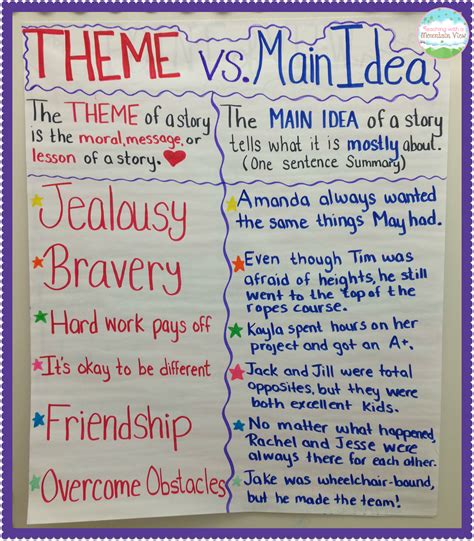 Teaching with a
Mountain View
THEME vs. Main Idea
The THEME of a story
is the moral, message, or
lesson of a story.
The MAIN IDEA of a story
tells what it is mostly about.
(One sentence Summary)
Jealousy
Amanda always wanted
the same things May had.
Bravery
Even though Tim was
afraid of heights, he still
went to the top of the
ropes course.
Hard work pays off
Kayla spent hours on her
project and got an A+.
It's okay to be different
Jack and Jill were total
opposites, but they were
both excellent kids.
Friendship
No matter what happened,
Rachel and Jesse were
always there for each other.
Overcome Obstacles
Jake was wheelchair-bound,
but he made the team!